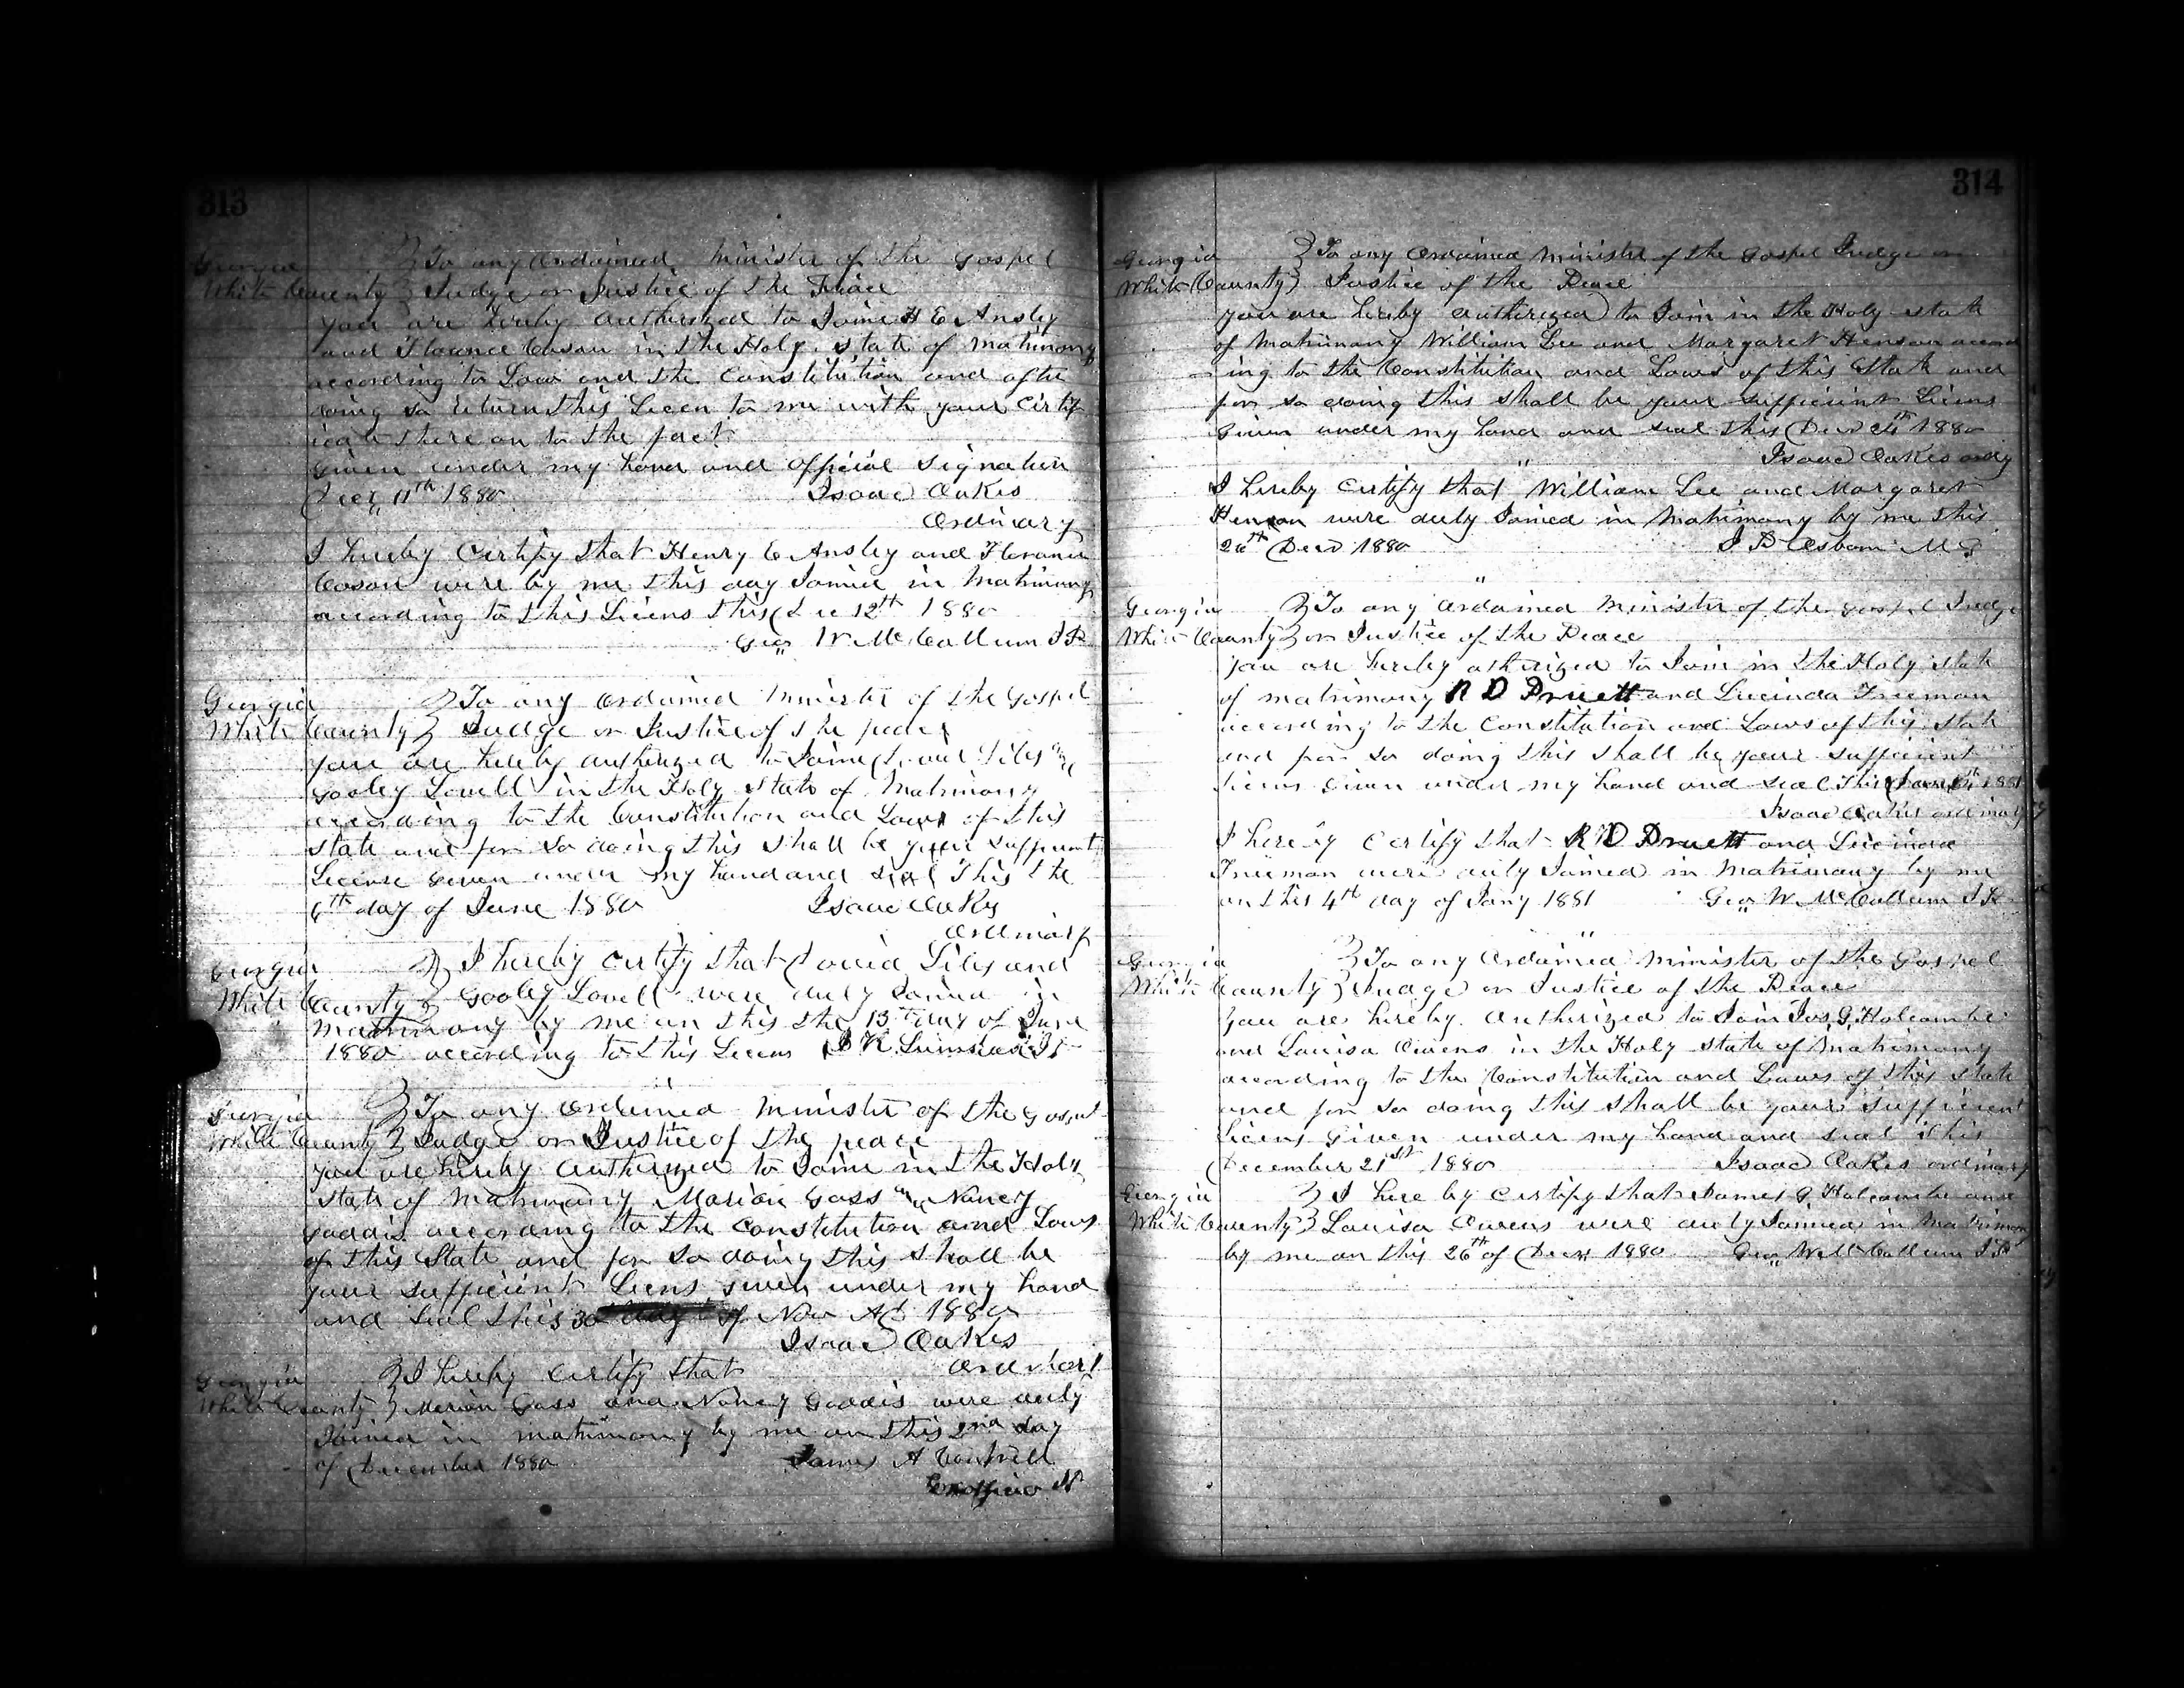 313
Georgia } To any Ordained Minister of the Gospel
White County } Judge or Justice of the Peace
you are hereby Authorized to Joine H E Ansley
and Florence Cason in the Holy state of Matrimony
according to Law and the Constitution and after
doing so return this Licen to me with your Certif
icate there on to the fact
Given under my hand and official signature
Decr 11th 1880 Isaac Oakes
Ordinary
I hereby Certify that Henry E Ansley and Florance
Cason were by me this day Joined in Matrimony
according to this Licens this Dec 12th 1880
Geo W McCollum J P
Georgia } To any Ordained Minister of the Gospel
White County } Judge or Justice of the
you are hereby authorized to Joine David and
Gooley Lovell in the Holy State of Matrimony
according to the Constitution and Laws of this
state and for so doing this shall be your sufficient
License Given under my hand and seal This the
6th day of June 1880 Isaac Oakes
Ordinary
Georgia } I hereby Certify that David and
White County } Gooley Lovell were duly Joined in
Matrimony by me on this the 13th day of June
1880 according to this Licens
Georgia } To any Ordained Minister of the Gospel
White County } Judge or Justice of the peace
you are hereby Authorized to Joine in the Holy
State of Matrimony Marion Gass and Nancy
Gaddis according to the Constitution and Laws
of this State and for so doing this shall be
your sufficient Licens given under my hand
and seal this 30 day of Nov AD 1880
Isaac Oakes
Georgia } I hereby Certify that Ordinary
White County } Marion Gass and Nancy Gaddis were duly
Joined in matrimony by me on this 2nd day
of December 1880 James A Cantrell
Exofficio JP
314
Georgia } To any Ordained Minister of the Gospel Judge or
White County } Justice of the Peace
you are hereby autherized to Join in the Holy state
of Matrimony William Lee and Margaret Henson accord
-ing to the Constitution and Laws of this State and
for so doing this shall be your sufficient Licens
Given under my hand and seal this 1880
Isaac Oakes ordy
I hereby Certify that William Lee and Margaret
Henson were duly Joined in Matrimony by me this
26th Decr 1880 Osborn M G
Georgia } To any Ordained Minister of the Gospel Judge
White County } or Justice of the Peace
you are hereby to Join in the Holy state
of matrimony R D Pruett and Lucinda Freeman
according to the Constitution and Laws of this state
and for so doing this shall be your sufficient
Licens Given under my hand and seal This 1881
Isaac Oakes ordinary
I hereby Certify that R D Pruett and Lucinda
Freeman were duly Joined in Matrimony by me
on this 4th day of Jany 1881 Geo W McCollum J P
Georgia } To any Ordained Minister of the Gospel
White County } Judge or Justice of the Peace
you are hereby Autherized to Join Jas G Holcombe
and Louisa Owens in the Holy state of Matrimony
according to the Constitution and Laws of this state
and for so doing this shall be your sufficient
Licens Given under my hand and seal this
December 21st 1880 Isaac Oakes ordinary
Georgia } I here by Certify that James G Holcombe and
White County } Louisa Owens were duly Joined in Matrimony
by me on this 26th of Decr 1880 Geo W McCollum J P